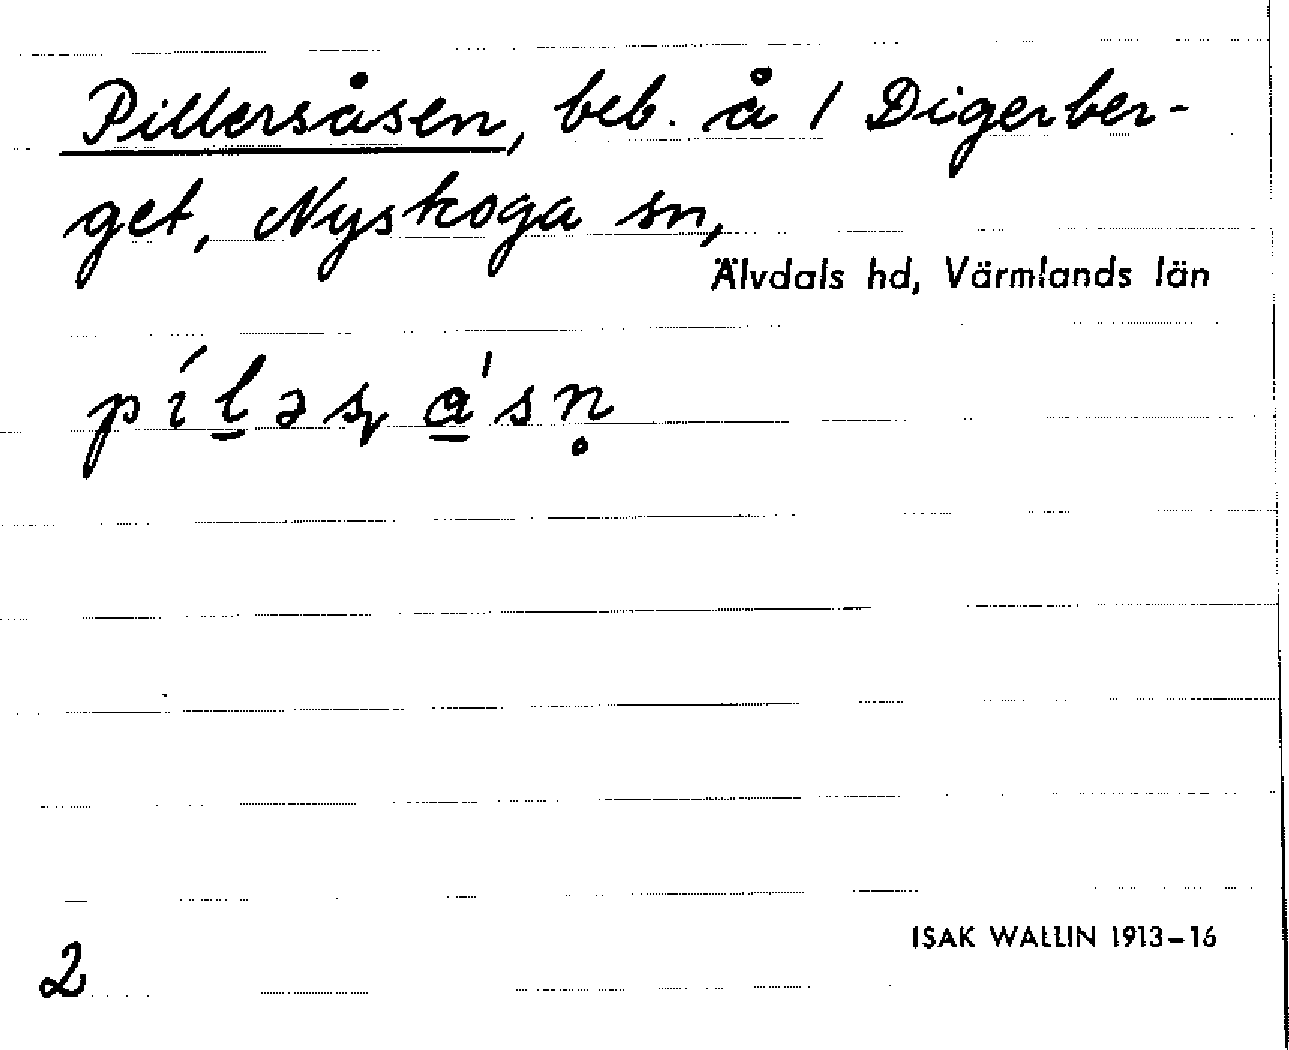 Pillersåsen, beb. å 1 Digerber-
get, Nyskoga sn,
Älvdals hd, Värmlands län
ISAK WALLIN 1913–16
2